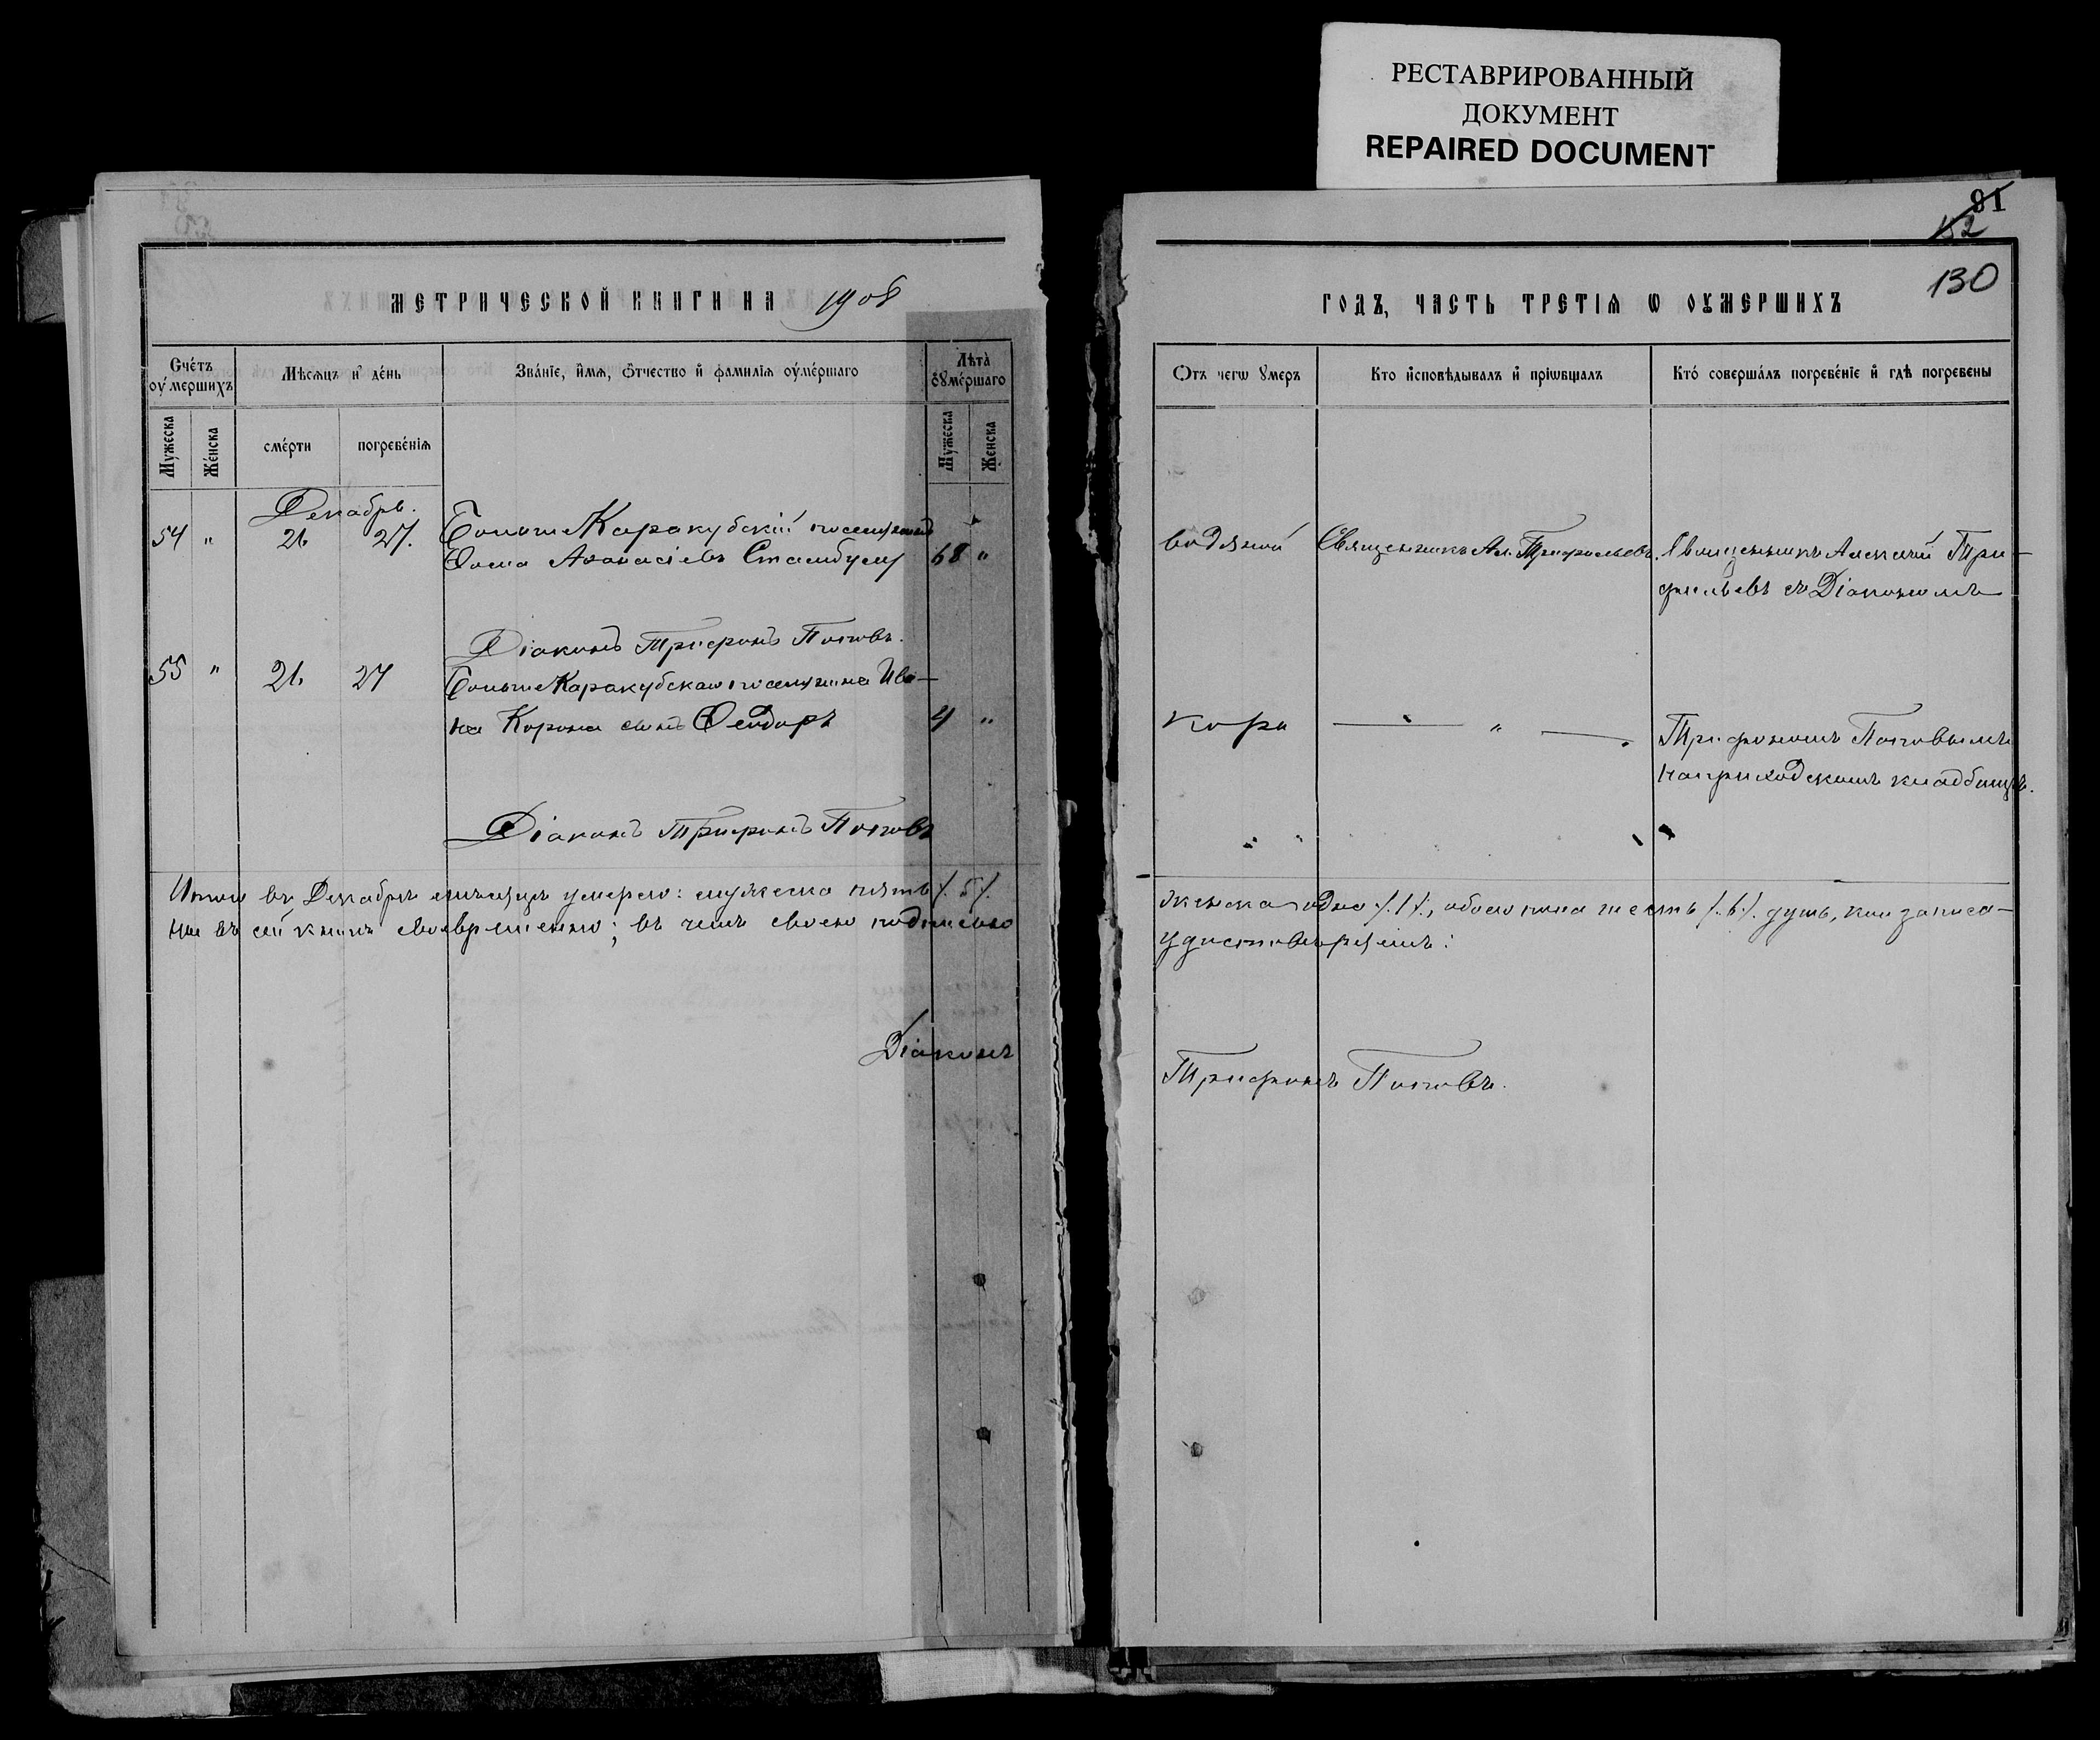 РЕСТАВРИРОВАННЫЙ
ДОКУМЕНТ
REPAIRED DOCUMENT
МЕТРИЧЕСКОЙ КНИГИ НА 1908
Счетъ оумершихъ
Мѣсяцъ и день
Званіе, имя, отчество и фамилія оумершаго
Лѣта оумершаго
Мужеска
Женска
смерти
погребенія
Мужеска
Женска
Декабрь.
54 " 21 27. Больше Каракубскій поселянинъ
Ѳома Аѳанасіевъ Стамбулу 68 "
Діаконъ Трифонъ Поповъ.
55 " 21 27 Больше Каракубскаго поселянина Ива-
на Корона сынъ Ѳеодоръ 4 "
Діаконъ Трифонъ Поповъ
Итого въ Декабрѣ мѣсяцѣ умерло: мужеска пять /.5/.
ны въ сей книгѣ своевременно; въ чемъ своею подписью
Діаконъ
81
152
130
ГОДЪ, ЧАСТЬ ТРЕТІЯ Ѡ ОУМЕРШИХЪ
Отъ чегѡ умеръ
Кто исповѣдывалъ и пріѡбщалъ
Кто совершалъ погребеніе и гдѣ погребены
водяной Священникъ Ал. Трифильевъ. Священникъ Алексій Три-
фильевъ съ Діакономъ
корь " Трифономъ Поповымъ
на приходскомъ кладбищѣ.
женска одно /.1/., обоего пола шесть /.6/. душъ, кои записа-
удостовѣряемъ:
Трифонъ Поповъ.